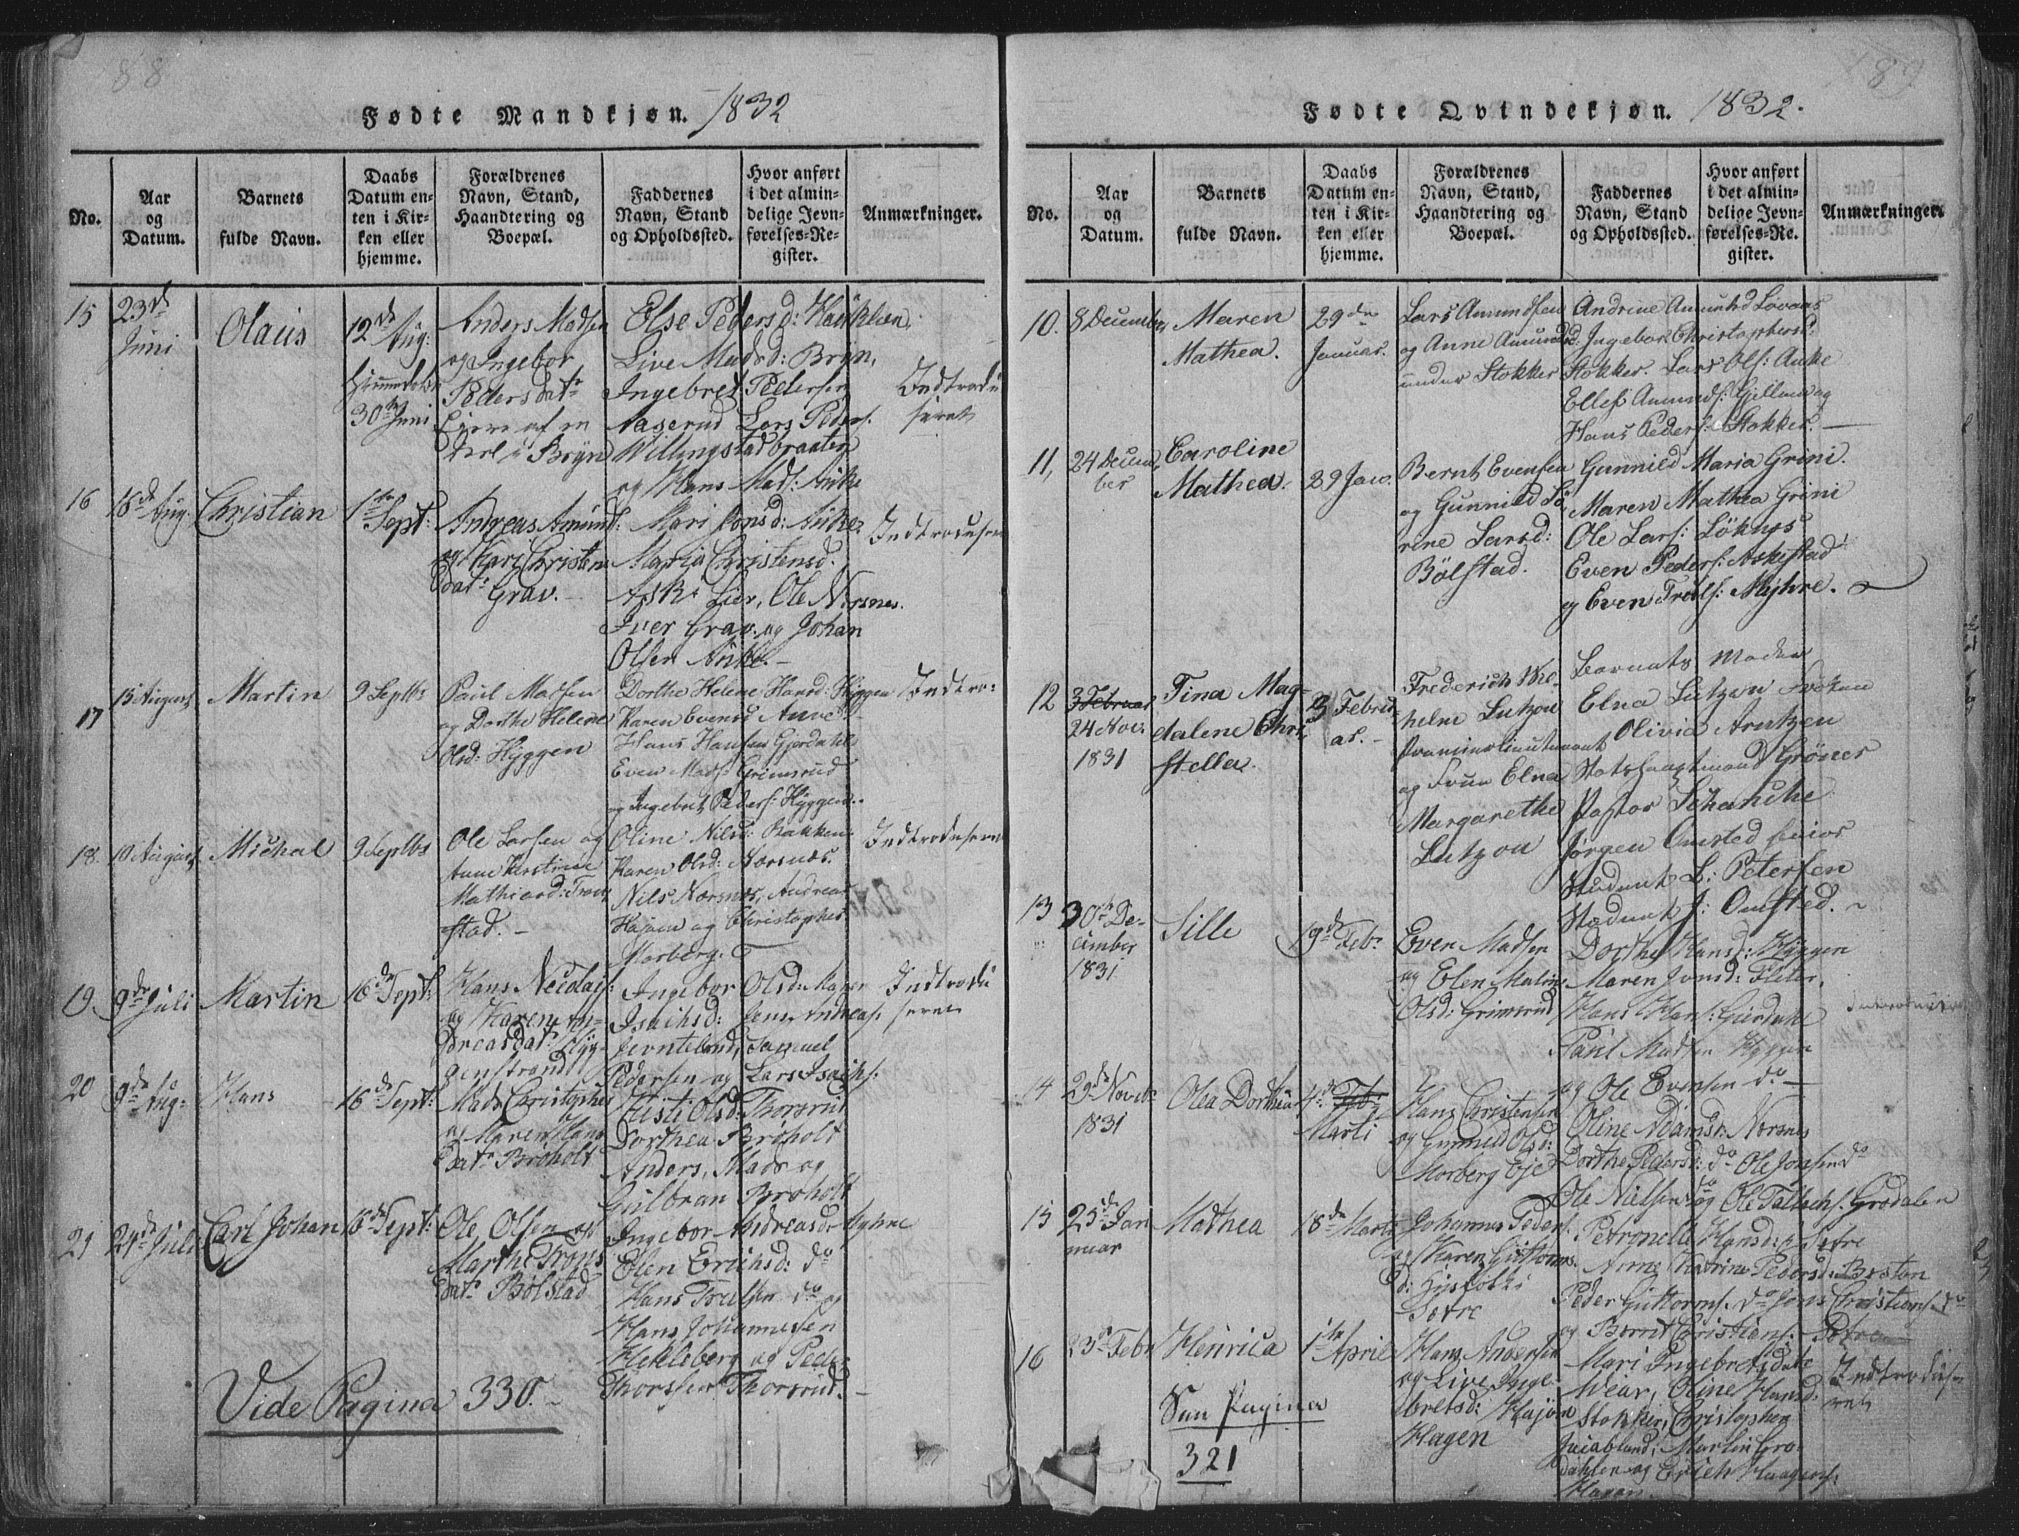 88
Fødte Mandkjøn. 1832
No.
Aar
og
Datum.
Barnets
fulde Navn.
Daabs
Datum en-
ten i Kir-
ken eller
hjemme.
Forældrenes
Navn, Stand,
Haandtering og
Boepæl.
Faddernes
Navn, Stand
og Opholdssted.
Hvor anført
i det almin-
delige Jevn-
førelses-Re-
gister.
Anmærkninger.
15
23de
Juni
Olaus
12de Aug:
30te Juni
Anders Madsen
og Ingebor
Pedersdatr
i Bryn
Else Pedersd:
Live Madsd: Bryn,
Ingebret Pedersen
Aaserud Lars Peders:
Willingstadbraaten
og Hans Mads: Auke
Indtrodu
seret
16
18de Aug:
Christian
1te Sept:
Andreas Amund:
og Kari Christens
datr Grav.
Mari Jonsd: Auke
Maria Christensd.
Ask: Lier, Ole Nærsnes.
Iver Grav: og Johan
Olsen Auke.
Indtroduseret
17
15 August
Martin
9 Septbr
Paul Madsen
og Dorthe Helene
Olsd: Hyggen
Dorthe Helene Hansd: Hyggen
Karen Evensd
Hans Hansen Gjerdahl
Even Mads: Grimsrud
og Ingebret Peders: Hyggen.
Indtro:
18.
10 August
Michal
9 Septbr
Ole Larsen og
Anne Kerstine
Mathisd:
stad.
Oline Nilsd: Bakken
Karen Olsd: Nærsnes.
Nils Nærsnes, Andreas
Højen og Christopher
Morberg.
Indtroduseret
19.
9de Juli
Martin
16de Sept:
Hans Nicolais:
og Karen An-
dreasdatr Hyg-
genstrand
Ingebor Olsd:
Isachsd:
Samuel
Pedersen og Lars Isachs:
Indtrodu
seret
20
9de Aug:
Hans
16de Sept:
Mads Christophers
og Maren Hans
datr Broholt
Kisti Olsd: Thorsrud
Dorthea Broholt
Anders, Mads og
Gulbran Broholt
21
24de Juli
Carl Johan
16de Sept:
Ole Olsen og
Marthe Trons
datr Bølstad
Ingebor Andreasdr Myhre
Elen Erichsd: do
Hans Troelsen do og
Hans Johannessen
Hekleberg og Peder
Thorssen Thorsrud.
Vide Pagina 330.
189
Fødte Qvindekjøn. 1832.
No.
Aar
og
Datum.
Barnets
fulde Navn.
Daabs
Datum en-
ten i Kir-
ken eller
hjemme.
Forældrenes
Navn, Stand,
Haandtering og
Boepæl.
Faddernes
Navn, Stand
og Opholdssted.
Hvor anført
i det almin-
delige Jevn-
førelses-Re-
gister.
Anmærkninger.
10.
8 December
Maren
Mathea.
29de
Januar.
Lars Amundsen
og Anne Amundsd.
under Stokker
Andrine Amundsd Lovaas
Ingebor Christophersd:
Stokker. Lars Ols: Auke
Ellef Amunds: Gilland og
Hans Peders: Stokker.
11,
24 Decem
ber
Caroline
Mathea.
29 Jan.
Bernt Evensen
og Gunnild Sø
rine Larsd:
Bölstad.
Gunnild Maria Grini.
Maren Mathea Grini
Ole Lars: Löknes
Even Peders: Askestad
og Even Troels: Myhre.
12
3 Februar
24 Nov:
1831
Tina Mag-
dalene Chri-
stella.
3 Febru
ar.
Frederich Wil-
helm Lutzou
Premierlieutenant
og Frue Elna
Margarethe
Lutzou
Barnets Moder
Elna Lutzou Frøken
Olivia Arntzen
Gröner
Pastor Schanche
Jörgen Omsted
Student L: Petersen
Student J: Omsted.
13
30te De-
cember
1831.
Sille
19de Febr
Even Madsen
og Elen Malin
Olsd: Grimsrud
Dorthe Hansd: Hyggen
Maren Jonsd: Fleter.
Hans Hans: Gierdale
Paul Madsen Hyggen
og Ole Evensen do
Introduseret
4
29de Novbr
1831
Olea Dorthea
4de Feb:
Marti
Hans Christensen
og Gunnild Olsd:
Morberg Eje
Oline Adamsr: Nærsnes
Dorthe Pedersd: do Ole Jonsen do
Ole Nielsen do og Ole Tallachs: Grødalen
15
25de Jan
nuar
Mathea
18de Marti
Johannes Peders:
og Karen Guttorms
d:
Sætre
Petronelle Hansd: Sætre
Anne Katrine Pedersd: Braten
Peder Guttorms. do Jens Christians. do
og Bernt Christians. Sætre
16
23de Febr
Henrica
1te April
Hans Andersen
og Live Inge-
bretsd: Højen
Hagen
Mari Ingebretsdatr
Wear, Oline Hansd:
Stokker, Christopher
Juiabland, Martin Grø-
dahlen og Erich Haagens:
Hagen.
Indtroduse
ret
Sun Pagina
321